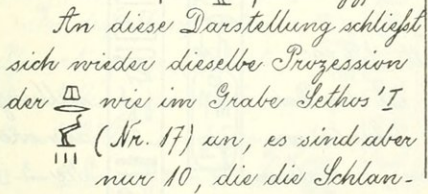 An diese Darstellung schließt
sich wieder dieselbe Prozession
der wie im Grabe Sethos' I
(Nr. 17) an, es sind aber
nur 10, die die Schlan-